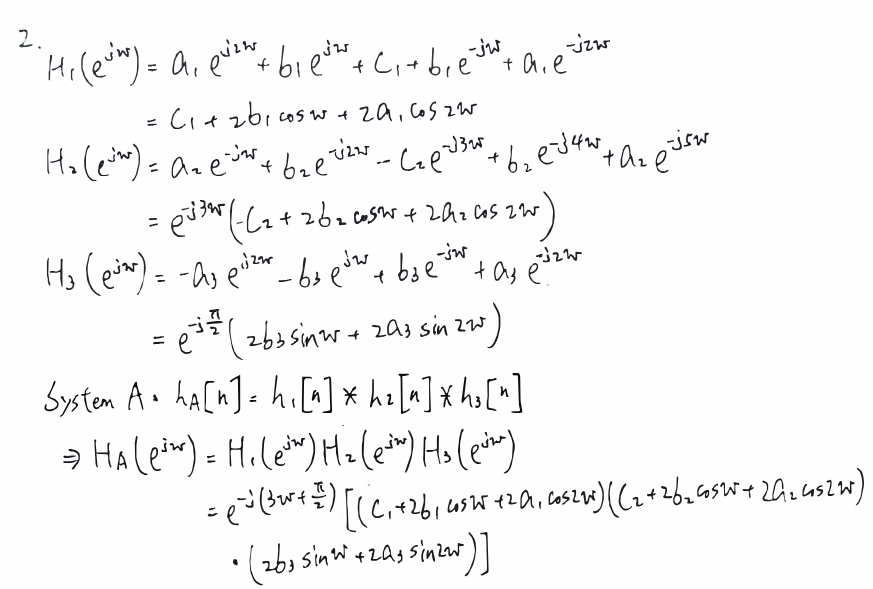 2.
H₁(e^{jw}) = a₁ e^{j2w} + b₁ e^{jw} + C₁ + b₁ e^{-jw} + a₁ e^{-j2w}
= C₁ + 2b₁ cos w + 2a₁ cos 2w
H₂(e^{jw}) = a₂ e^{-jw} + b₂ e^{-j2w} - C₂ e^{-j3w} + b₂ e^{-j4w} + a₂ e^{-j5w}
= e^{-j3w} (-C₂ + 2b₂ cos w + 2a₂ cos 2w)
H₃(e^{jw}) = -a₃ e^{j2w} - b₃ e^{jw} + b₃ e^{-jw} + a₃ e^{-j2w}
= e^{-j π/2} (2b₃ sin w + 2a₃ sin 2w)
System A. h_A[n] = h₁[n] * h₂[n] * h₃[n]
⇒ H_A(e^{jw}) = H₁(e^{jw}) H₂(e^{jw}) H₃(e^{jw})
= e^{-j(3w + π/2)} [(C₁ + 2b₁ cos w + 2a₁ cos 2w)(C₂ + 2b₂ cos w + 2a₂ cos 2w)
· (2b₃ sin w + 2a₃ sin 2w)]